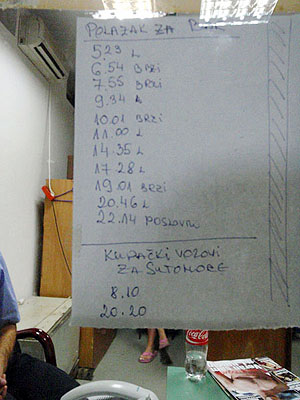 POLAZAK ZA BAR
5.23 L
6.54 BRZI
7.55 BRZI
9.34 L
10.01 BRZI
11.00 L
14.35 L
17.28 L
19.01 BRZI
20.46 L
22.14 POSLOVNI
KUPAČKI VOZOVI
ZA SUTOMORE
8.10
20.20
Coca-Cola